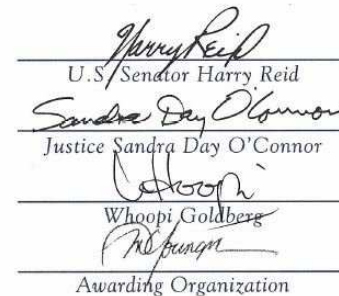 Harry Reid
U.S. Senator Harry Reid
Sandra Day O'Connor
Justice Sandra Day O'Connor
Whoopi
Whoopi Goldberg
Awarding Organization